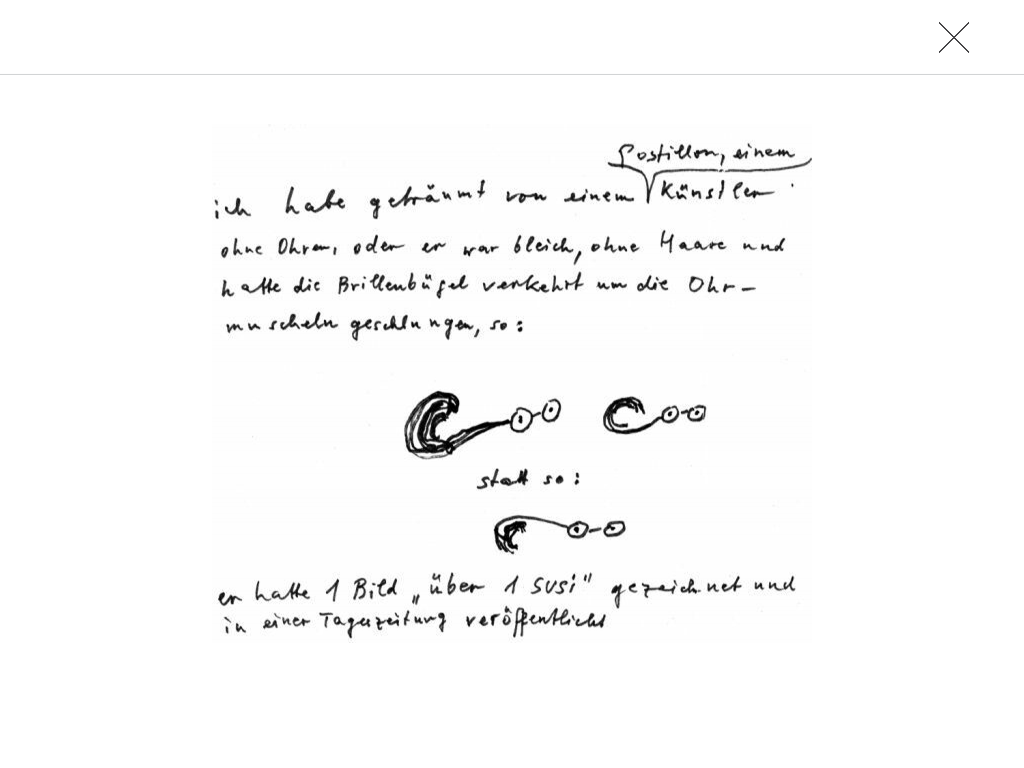 Postillon, einem
ich habe geträumt von einem Künstler
ohne Ohren, oder er war bleich, ohne Haare und
hatte die Brillenbügel verkehrt um die Ohr-
muscheln geschlungen, so:
statt so:
er hatte 1 Bild „über 1 Susi" gezeichnet und
in einer Tageszeitung veröffentlicht